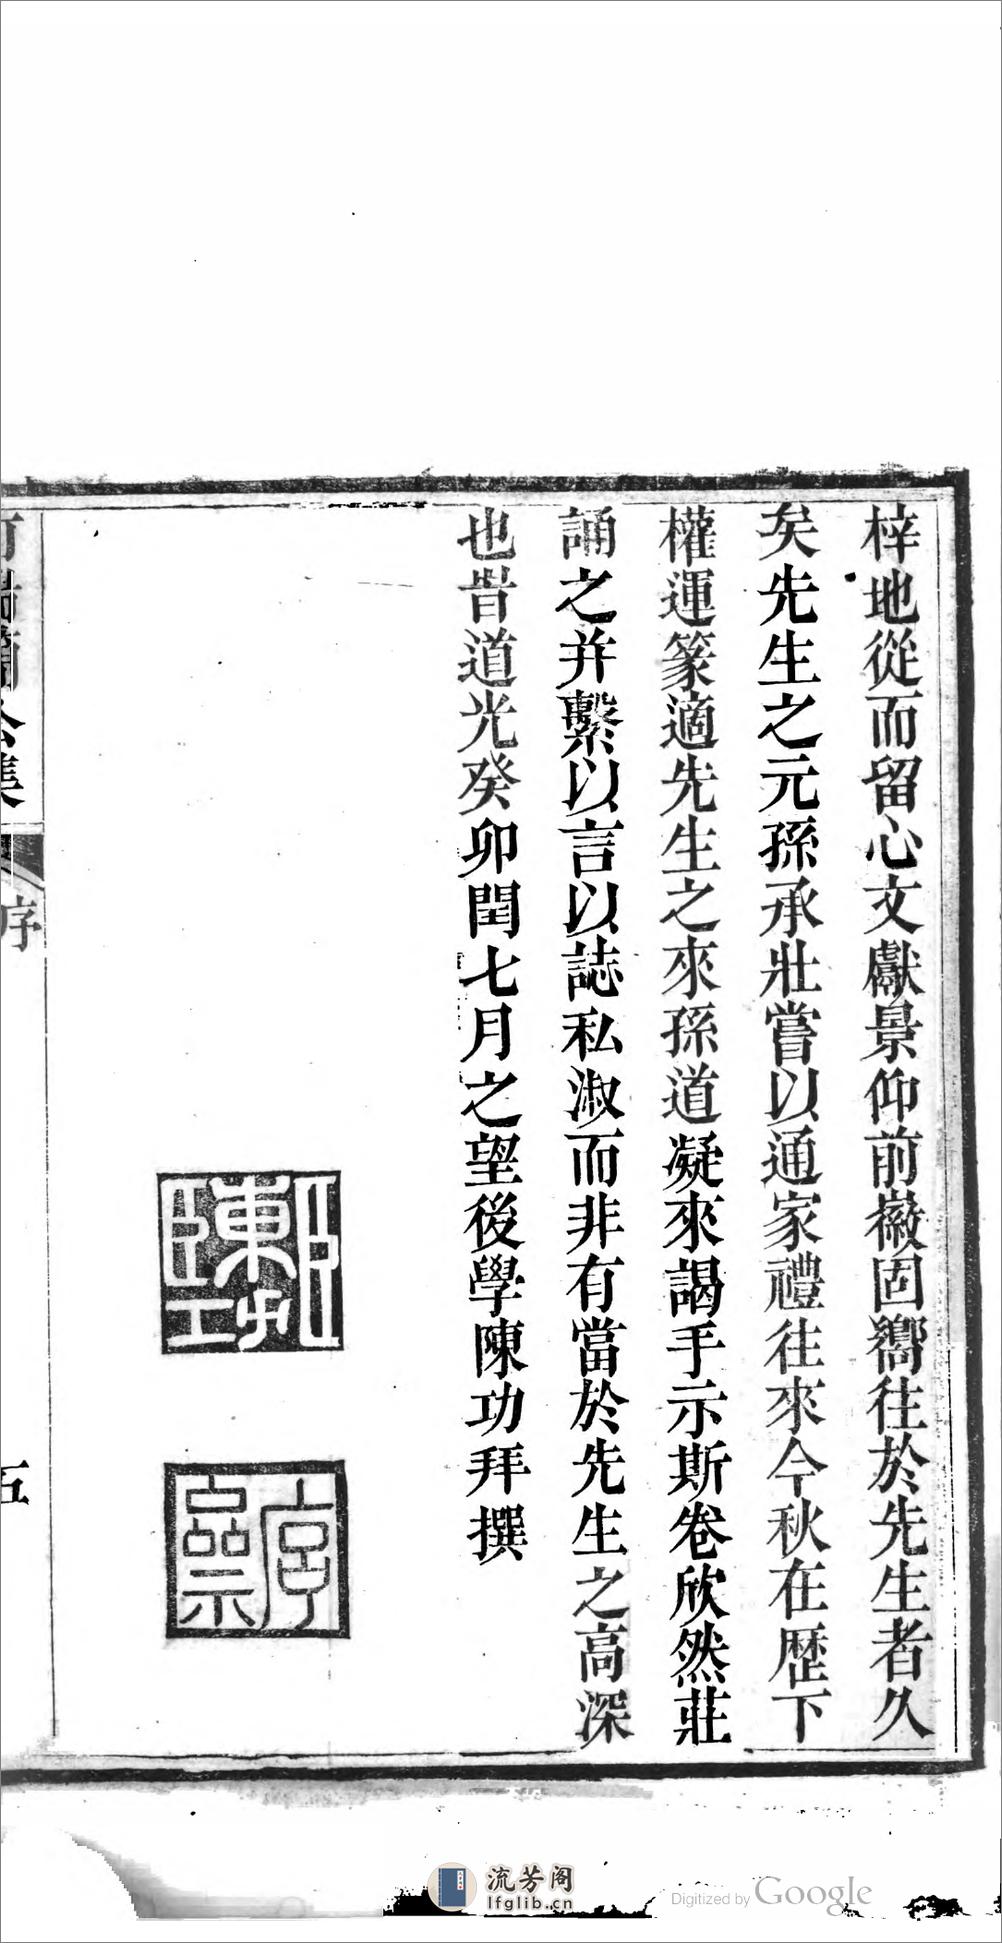 梓地從而留心文獻景仰前徽固嚮往於先生者久
矣先生之元孫承壯嘗以通家禮往來今秋在歷下
權運篆適先生之來孫道凝來謁手示斯卷欣然莊
誦之并繫以言以誌私淑而非有當於先生之高深
也旹道光癸卯閏七月之望後學陳功拜撰
陳功印
序
五
流芳阁
lfglib.cn
Digitized by Google